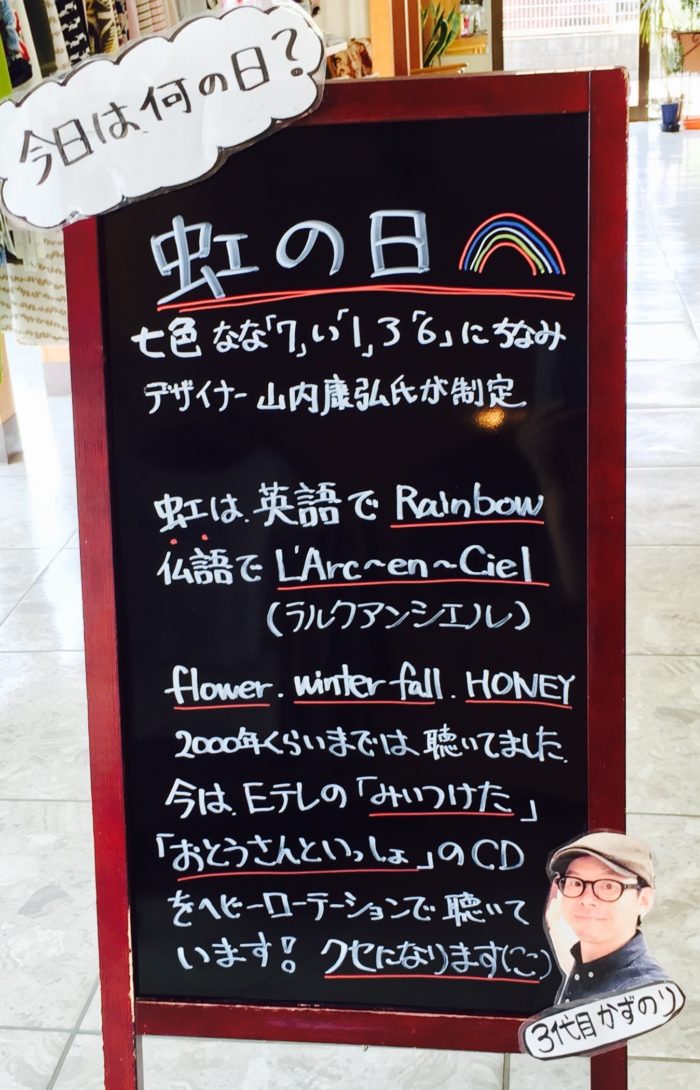 今日は何の日?
虹の日
七色 なな「7」い「1」3「6」にちなみ
デザイナー 山内康弘氏が制定
虹は、英語で Rainbow
仏語で L'Arc~en~Ciel
(ラルクアンシエル)
flower. winter fall. HONEY
2000年くらいまでは聴いてました。
今は、Eテレの「みいつけた」
「おとうさんといっしょ」のCD
をヘビーローテーションで聴いて
います! クセになります(^^)
3代目かずのり